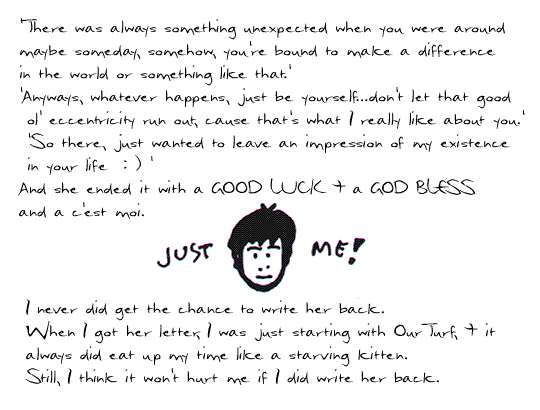 'There was always something unexpected when you were around
maybe someday, somehow, you're bound to make a difference
in the world or something like that.'
'Anyways, whatever happens, just be yourself...don't let that good
ol' eccentricity run out, cause that's what I really like about you.'
'So there, just wanted to leave an impression of my existence
in your life :) '
And she ended it with a GOOD LUCK + a GOD BLESS
and a c'est moi.
JUST ME!
I never did get the chance to write her back.
When I got her letter, I was just starting with OurTurf, + it
always did eat up my time like a starving kitten.
Still, I think it won't hurt me if I did write her back.